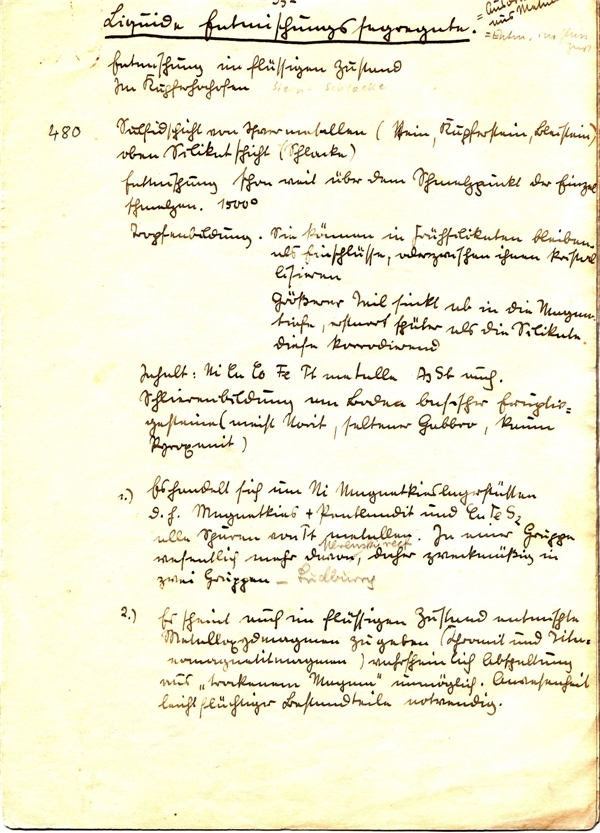 Liquide Entmischungssegregate.
Entmischung im flüssigen Zustand
Im Kupferhochofen Stein - Schlacke
480 Sulfidschicht von Schwermetallen (Stein, Kupferstein, Bleistein)
oben Silikatschicht (Schlacke)
Entmischung schon weit über dem Schmelzpunkt der Einzel
schmelzen. 1500°
Tropfenbildung. Sie können in Frühsilikaten bleiben
als Einschlüsse, oder zwischen ihnen kristal
lisieren
Größerer Teil sinkt ab in die Magma-
tiefe, erstarrt später als die Silikate.
diese korrodierend
Inhalt: Ni Cu Co Fe Pt metalle As Sb auch.
Schlierenbildung am Boden basischer Eruptiv=
gesteine (meist Norit, seltener Gabbro, kaum
Pyroxenit)
1.) Es handelt sich um Ni Magnetkieslagerstätten
d. h. Magnetkies + Pentlandit und CuFeS2
alle Spuren von Pt metallen. In einer Gruppe
Merenskyreef
wesentlich mehr davon, daher zweckmäßig in
zwei Gruppen – Sudburry
2.) Es scheint auch im flüssigen Zustand entmischte
Metalloxydmagmen zu geben. (Chromit und Tita=
nomagnetitmagmen) wahrscheinlich Abspaltung
aus „trockenem Magma" unmöglich. Anwesenheit
leicht flüchtiger Bestandteile notwendig.